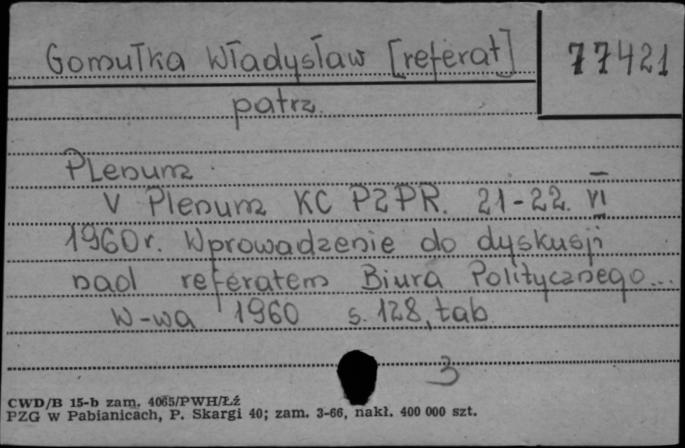 Gomułka Władysław [referat] 77421
patrz
Plenum
V Plenum KC PZPR. 21-22. VI
1960r. Wprowadzenie do dyskusji
nad referatem Biura Politycznego...
W-wa 1960 s. 128, tab
3
CWD/B 15-b zam. 4065/PWH/Łź
PZG w Pabianicach, P. Skargi 40; zam. 3-66, nakł. 400 000 szt.